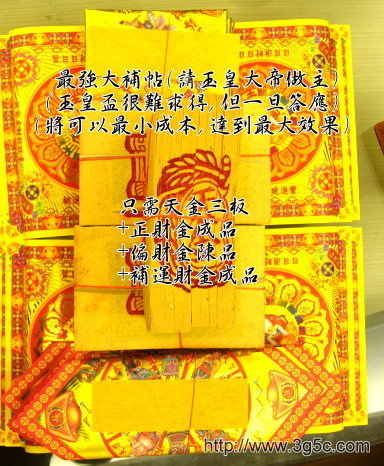 最強大補帖(請玉皇大帝做主)
(玉皇盃很難求得,但一旦答應)
(將可以最小成本,達到最大效果)
只需天金三板
+正財金成品
+偏財金陳品
+補運財金成品
http://www.3g5c.com